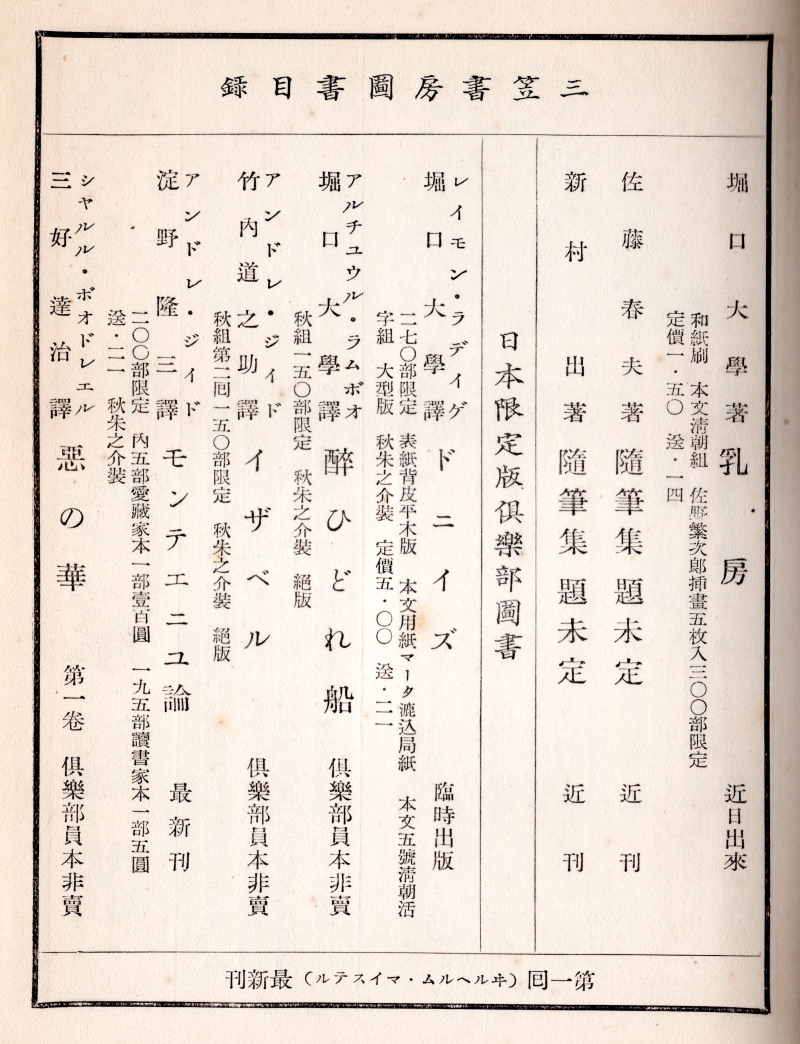 三笠書房圖書目録
堀口大學著 乳房 近日出來
和紙刷 本文清朝組 佐野繁次郎挿畫五枚入三〇〇部限定
定價一・五〇 送・一四
佐藤春夫著 隨筆集 題未定 近刊
新村出著 隨筆集 題未定 近刊
日本限定版倶樂部圖書
レイモン・ラデイゲ
堀口大學譯 ドニイズ 臨時出版
二七〇部限定 表紙背皮平木版 本文用紙マータ漉込局紙 本文五號清朝活
字組 大型版 秋朱之介裝 定價五・〇〇 送・二一
アルチュウル・ラムボオ
堀口大學譯 醉ひどれ船 倶樂部員本非賣
秋組一五〇部限定 秋朱之介裝 絕版
アンドレ・ジイド
竹內道之助譯 イザベル 倶樂部員本非賣
秋組第二囘一五〇部限定 秋朱之介裝 絕版
アンドレ・ジイド
淀野隆三譯 モンテエニユ論 最新刊
二〇〇部限定 內五部愛藏家本一部壹百圓 一九五部讀書家本一部五圓
送・二一 秋朱之介裝
シャルル・ボオドレエル
三好達治譯 惡の華 第一卷 倶樂部員本非賣
第一囘(ヰルヘルム・マイステル)最新刊